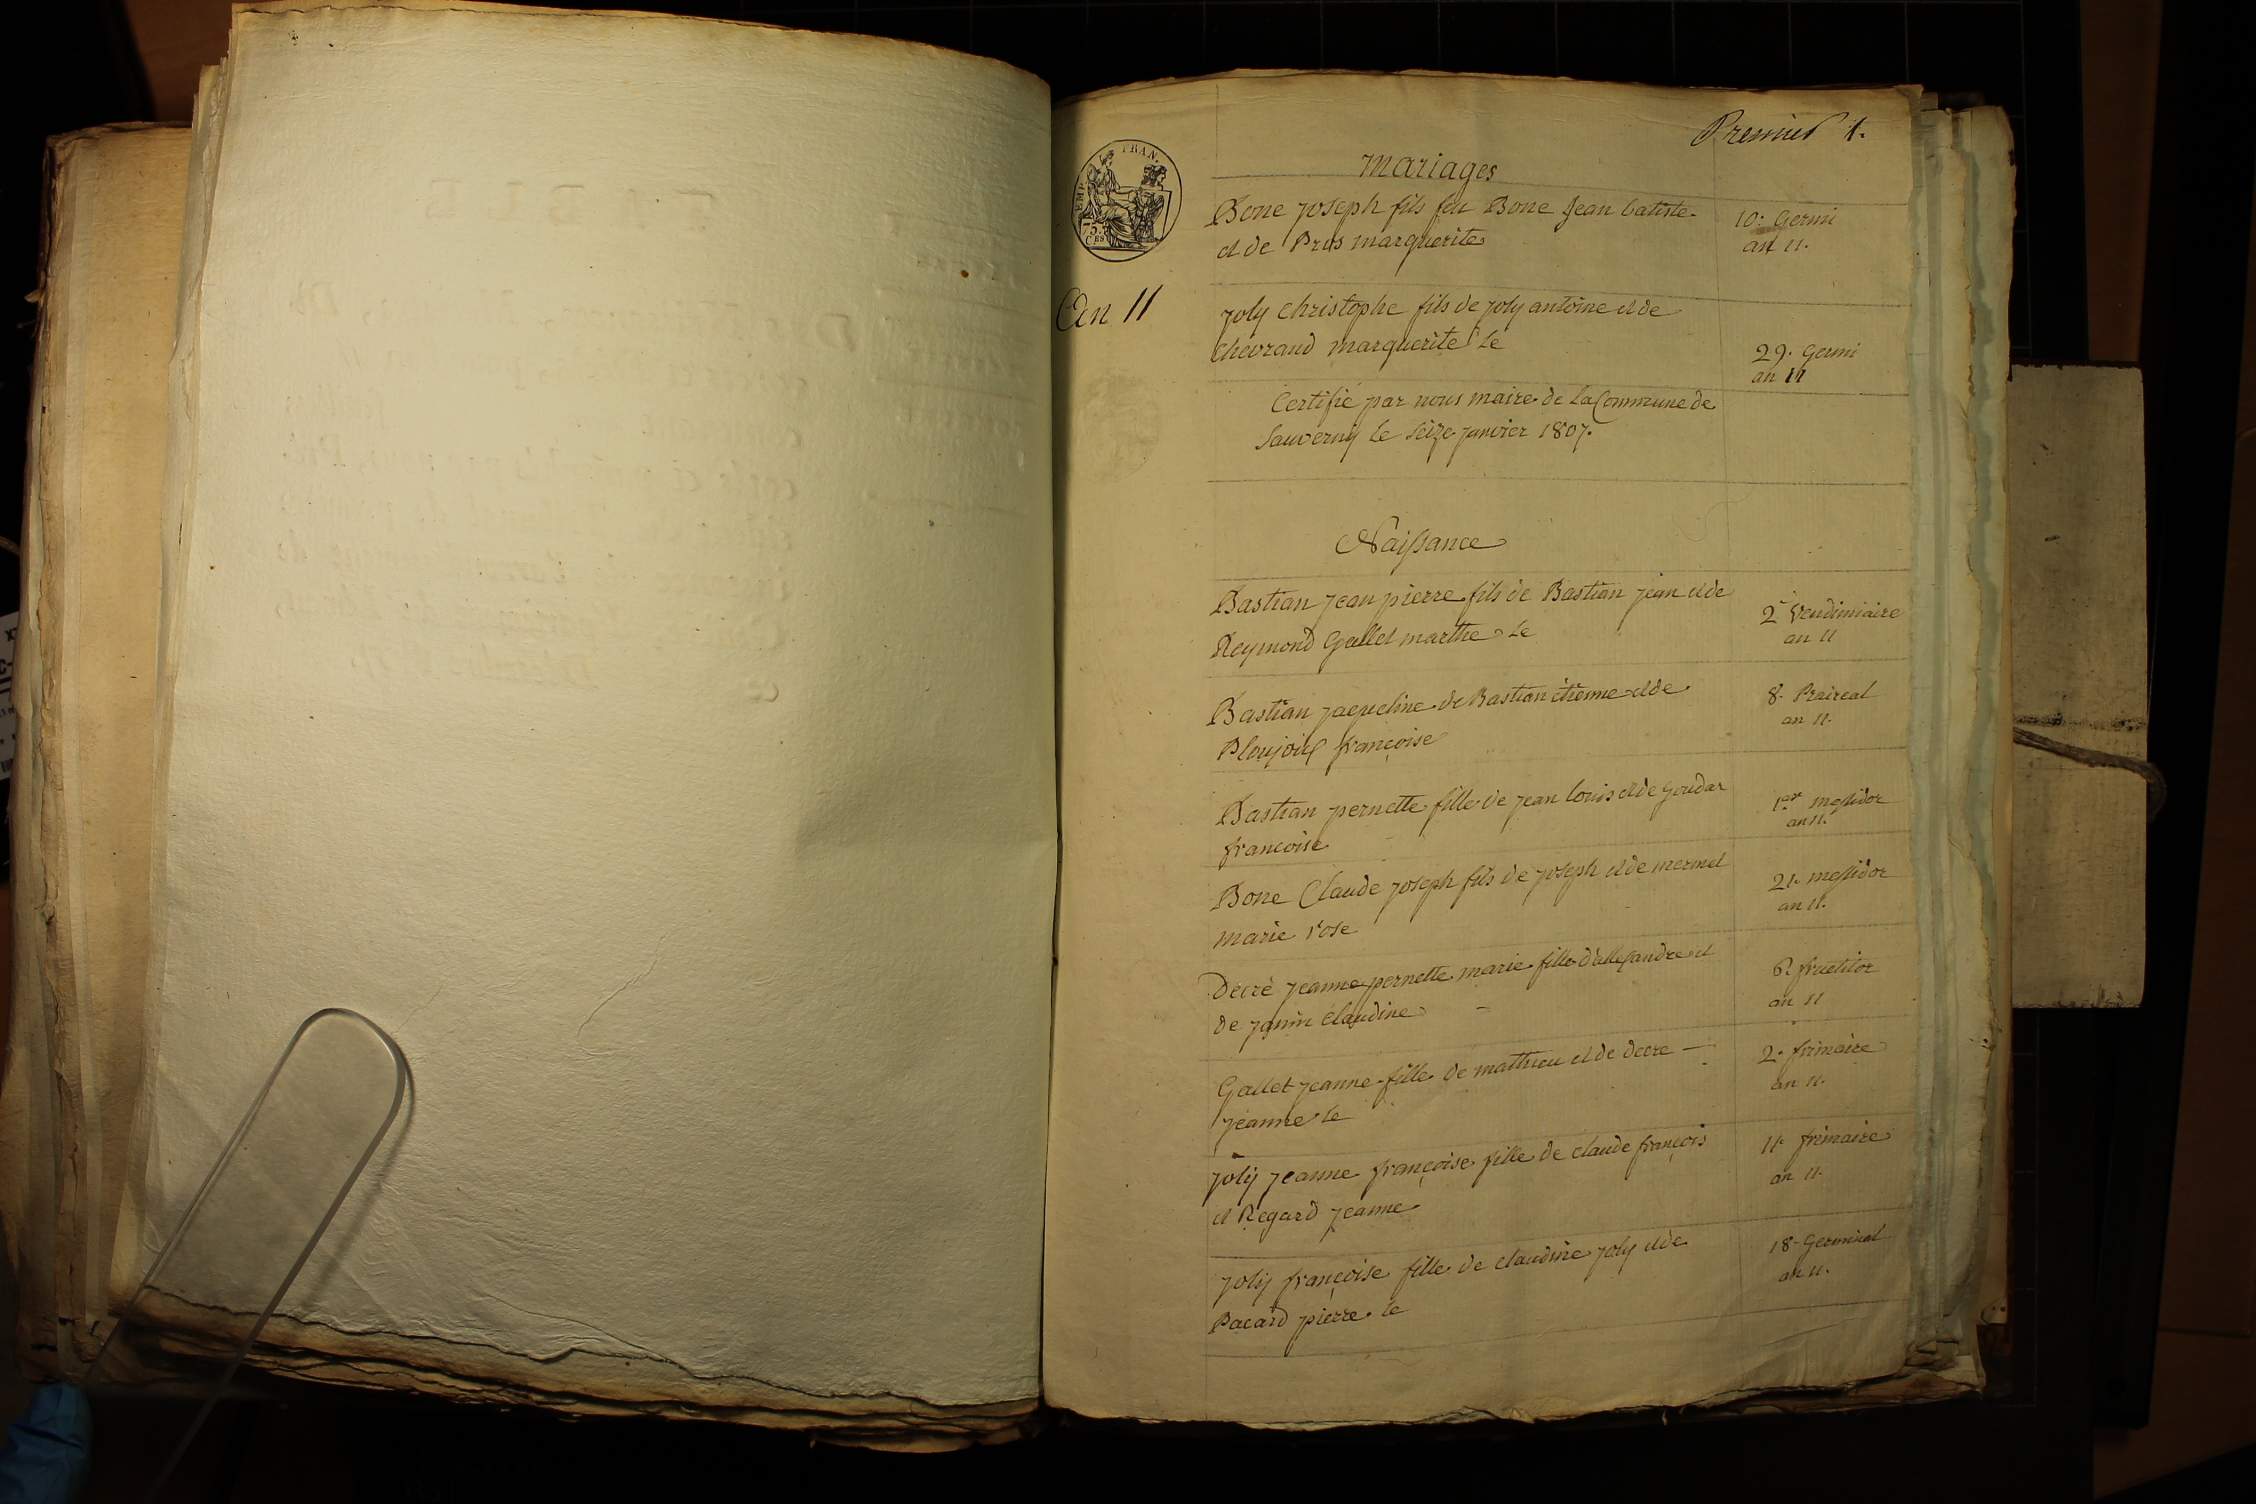 Premier 1.
EMP. FRAN.
75.
CES
An 11
Mariages
Bone joseph fils feu Bone Jean batiste
et de Pros marguerite
10. Germi
an 11.
joly christophe fils de joly antoine et de
chevraud marguerite le
29. Germi
an 11
Certifié par nous maire de la Commune de
Sauverny le seize janvier 1807.
Naissance
Bastian jean pierre fils de Bastian jean et de
Reymond Gallet marthe le
2 Vendimiaire
an 11
Bastian jaqueline de Bastian étienne et de
françoise
8. Praireal
an 11.
Bastian pernette fille de jean louis et de goudar
francoise
1er messidor
an 11.
Bone Claude joseph fils de joseph et de mermet
marie rose
21. messidor
an 11.
Decré jeanne pernette marie fille d'allexandre et
de janin claudine
6. fructitor
an 11
Gallet jeanne fille de mathieu et de decre
jeanne le
2. frimaire
an 11.
joly jeanne françoise fille de claude françois
et Regard jeanne
11. frimaire
an 11.
joly françoise fille de claudine joly et de
Pacard pierre le
18. Germinal
an 11.